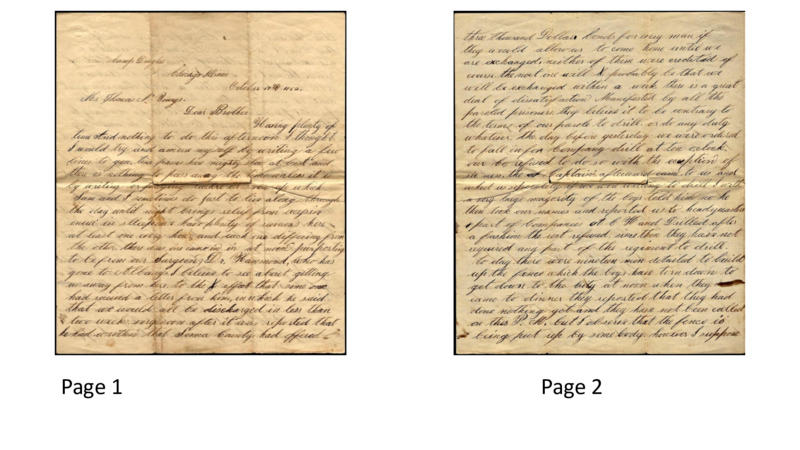 Camp Douglas
Chicago Illinois
October 14th 1862
Mr Thomas N.
Dear Brother
Having plenty of
time and nothing to do this afternoon I thought
I would try and amuse myself by writing a few
lines to you.
this is nothing to pass away the
by writing or
Sam and I sometimes do just to live along through
the day until night brings relief from
in sleep. we have plenty of rumors here
at least one a day and
the other. there was one came in at noon purporting
to be from our Surgeon, Dr. Hammond, who has
gone to Albany I believe to see about getting
us away from here to the effect that some one
had received a letter from him, in which he said
that we would all be discharged in less than
two weeks. very soon after it was reported that
he had written that County had offered
three thousand Dollars bonds for every man if
they would allow us to come home until we
are exchanged. neither of them were credited of
course. the next one will probably be that we
will be exchanged within a week. there is a great
deal of disatisfaction Manifested by all the
paroled prisoners. they believe it to be contrary to
the terms of our parole to drill or do any duty
whatever. The day before yesterday we were ordered
to fall in for Company drill at ten oclock.
our Co refused to do so with the exception of
six men. the Captain afterward came to us and
asked us separately if we were willing to drill.
a very large majority of the boys told him no. he
then took our names and reported us to headquarters
a part of Companies and Drilled after
a fashion. the rest refused. since then they have not
required any part of the regiment to drill.
to day there were nineteen men detailed to build
up the fence which the boys have torn down to
get down to the city. at noon when they
came to dinner they reported that they had
done nothing yet and they have not been called
on this P. M. but I observe that the fence is
being put up by some body. however I suppose
Page 1
Page 2